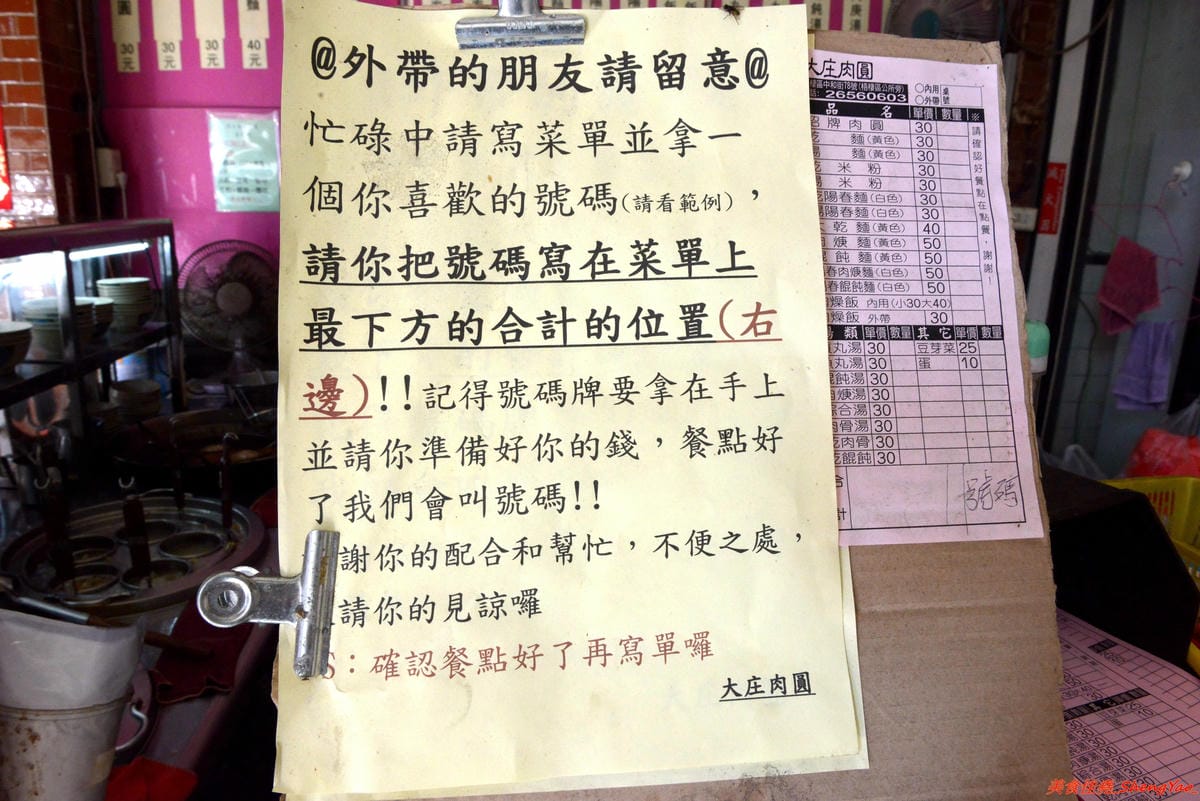 @外帶的朋友請留意@
忙碌中請寫菜單並拿一
個你喜歡的號碼(請看範例)，
請你把號碼寫在菜單上
最下方的合計的位置(右
邊)!!記得號碼牌要拿在手上
並請你準備好你的錢，餐點好
了我們會叫號碼!!
謝你的配合和幫忙，不便之處，
請你的見諒囉
S：確認餐點好了再寫單囉
大庄肉圓
30元 30元 30元 40元
大庄肉圓
區中和街78號(梧棲區公所旁) ○內用 桌號
26560603 ○外帶
品名 單價 數量 ※
招牌肉圓 30
麵(黃色) 30
麵(黃色) 30
米粉 30
米粉 30
陽春麵(白色) 30
陽春麵(白色) 30
乾麵(黃色) 40
焿麵(黃色) 50
餛飩麵(黃色) 50
春肉焿麵(白色) 50
春餛飩麵(白色) 50
燥飯 內用(小30大40)
燥飯 外帶 30
請確認好餐點在點餐，謝謝!
類 單價 數量 其它 單價 數量
丸湯 30 豆芽菜 25
丸湯 30 蛋 10
餛飩湯 30
焿湯 30
綜合湯 30
肉骨湯 30
肉骨 30
餛飩 30
合計
號碼
ShengYao